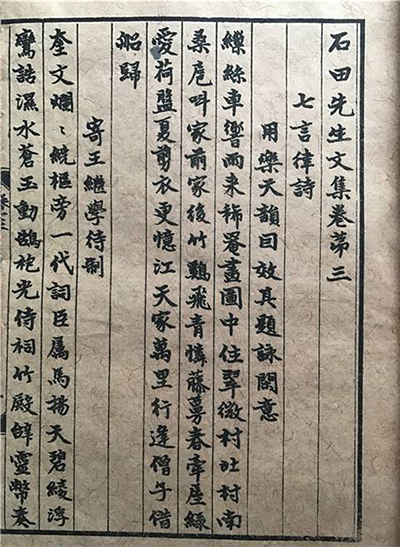 石田先生文集卷苐三
七言律詩
用樂天韻囙效其題詠閑意
繰絲車響雨来稀罨畫圖中住翠微村北村南
桑扈呌家前家後竹鷄飛青憐藤蔓春牽屋緑
愛荷盤夏剪衣更憶江天家萬里行逢僧乍借
船歸
寄王繼學待制
奎文爛〻統樞旁一代詞臣属馬揚天碧綾浮
鸞誥濕水蒼玉動鵠袍光侍祠竹殿靈幣奏